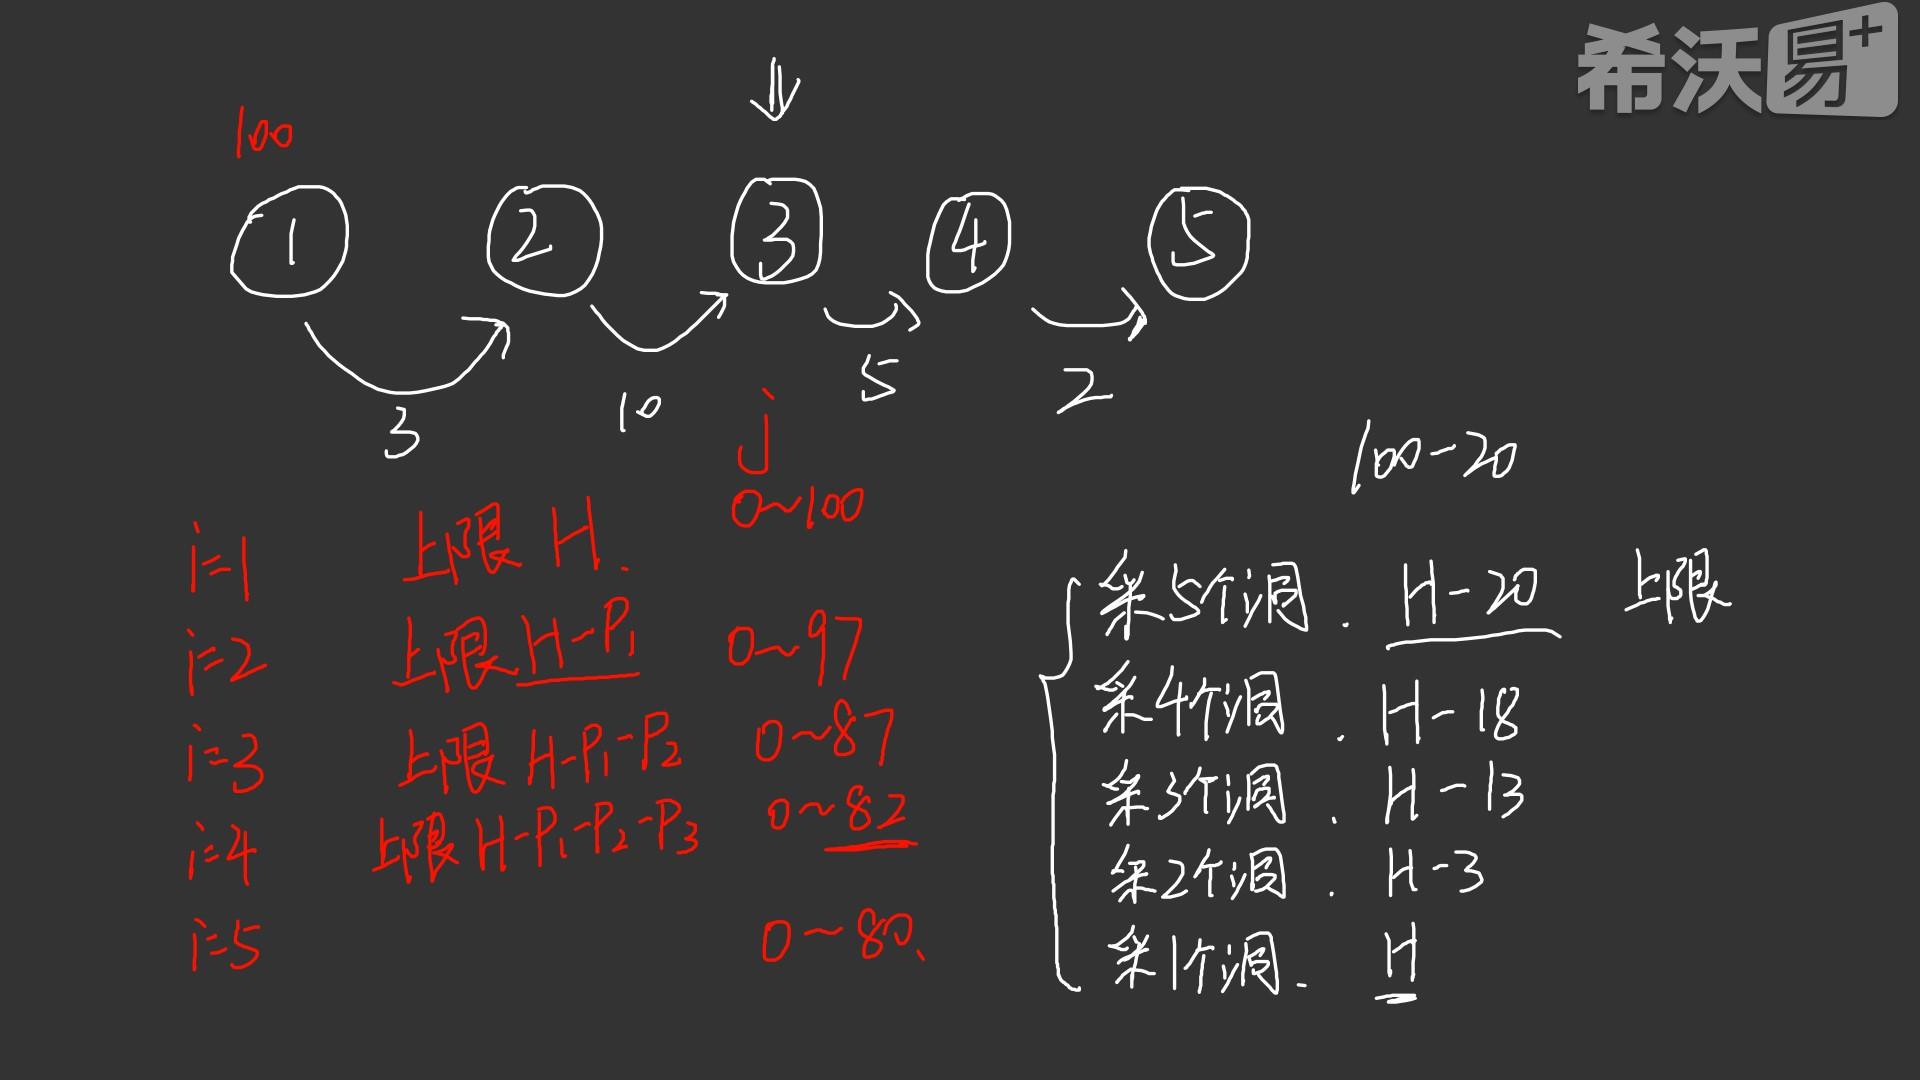 希沃易+
100
1 2 3 4 5
3 10 5 2
j
100-20
i=1 上限 H. 0~100
i=2 上限 H-P₁ 0~97
i=3 上限 H-P₁-P₂ 0~87
i=4 上限 H-P₁-P₂-P₃ 0~82
i=5 0~80、
采5个洞. H-20 上限
采4个洞. H-18
采3个洞. H-13
采2个洞. H-3
采1个洞. H